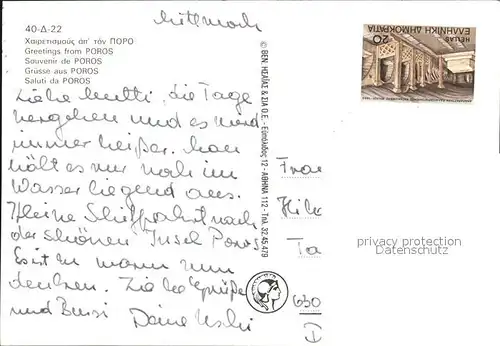 Mittwoch
40-Δ-22
Χαιρετισμούς ἀπ' τόν ΠΟΡΟ
Greetings from POROS
Souvenir de POROS
Grüsse aus POROS
Saluti da POROS
Liebe Mutti, die Tage
vergehen und es wird
immer heißer. Man
hält es nur noch im
Wasser liegend aus.
Kleine Schiffahrt nach
der schönen Insel Poros
Es ist zu warm zum
denken. Liebe Grüße
und Bussi Deine Uschi
© BEN. ΗΩΛΙΑΣ & ΣΙΑ Ο.Ε. - Εὐπόλιδος 12 - ΑΘΗΝΑ 112 - Τηλ. 32.45.479
20
ΕΛΛΗΝΙΚΗ ΔΗΜΟΚΡΑΤΙΑ
HELLAS
Frau
Hil
Ta
630
D
privacy protection
Datenschutz